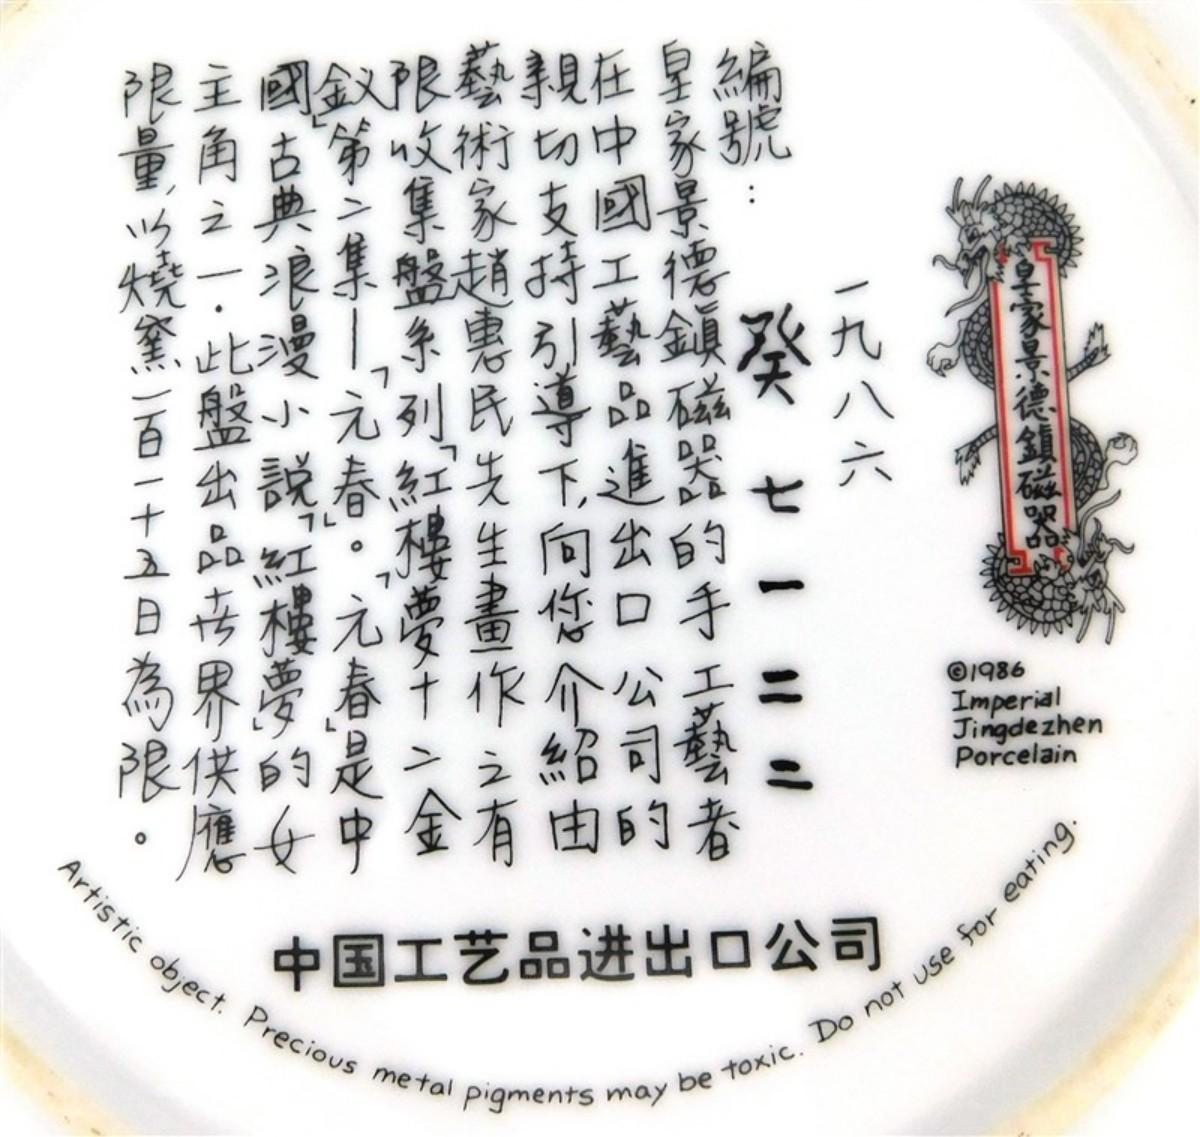 皇家景德鎮磁器
©1986
Imperial
Jingdezhen
Porcelain
一九八六
編號：
癸七一二二
皇家景德鎮磁器的手工藝者
在中國工藝品進出口公司的
親切支持引導下,向您介紹由
藝術家趙惠民先生畫作之有
限收集盤系列「紅樓夢十二金
釵」第二集—「元春」。「元春」是中
國古典浪漫小說「紅樓夢」的女
主角之一.此盤出品世界供應
限量,以燒窯一百一十五日為限。
中国工艺品进出口公司
Artistic object. Precious metal pigments may be toxic. Do not use for eating.